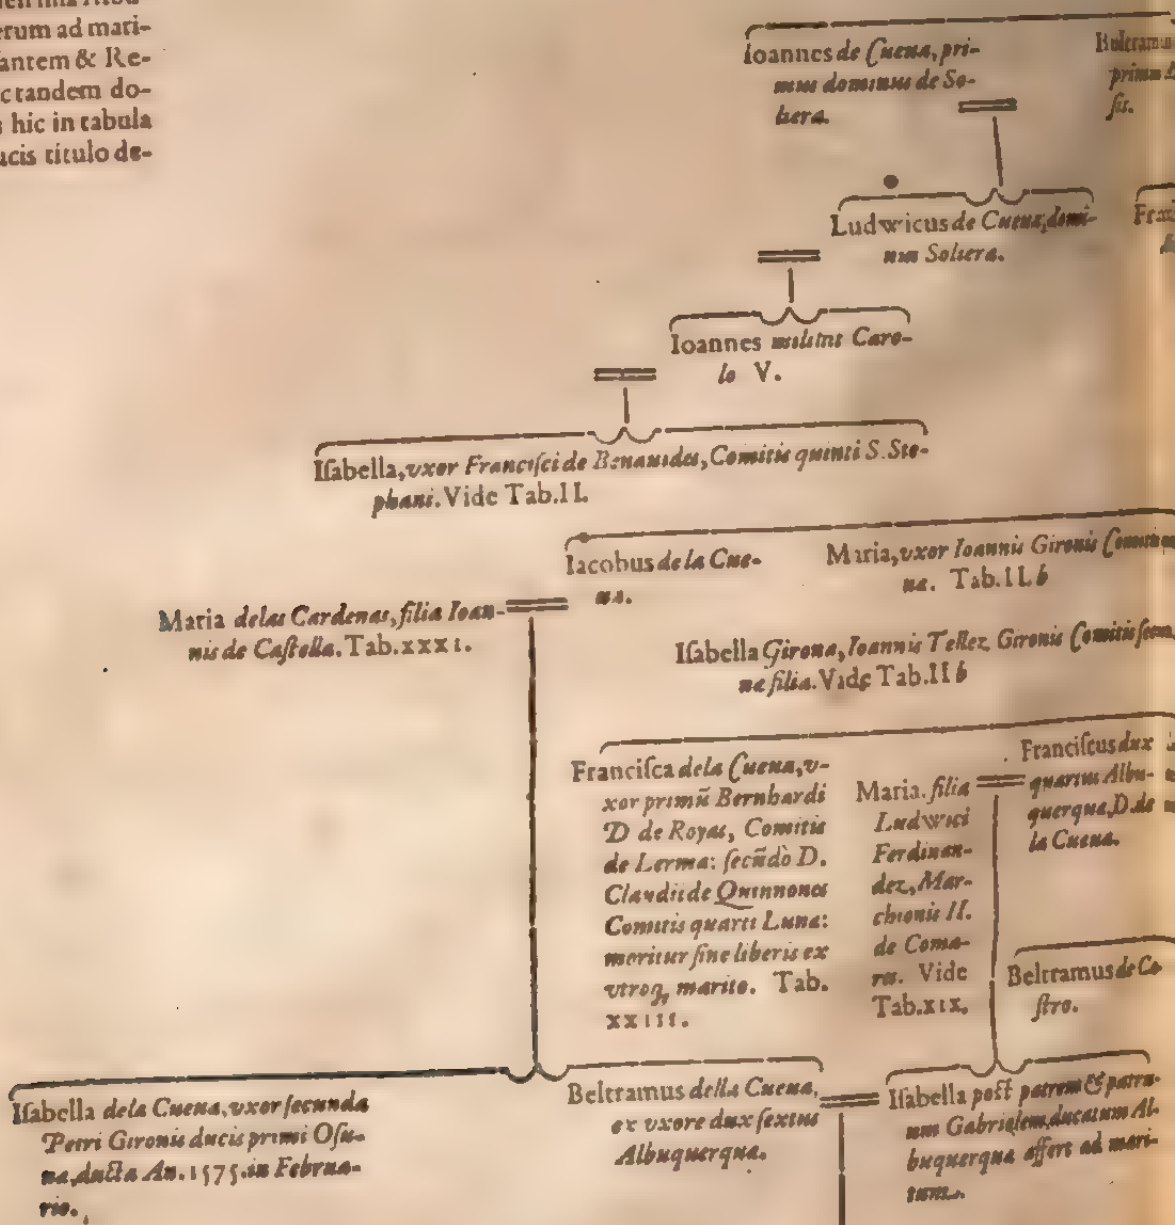 erum ad mari-
antem & Re-
c tandem do-
hic in tabula
ucis titulo de-
Ioannes de Cueua, pri-
mus dominus de So-
liera.
primus
sis.
Ludwicus de Cueua, domi-
nus Soliera.
Ioannes militat Caro-
lo V.
Isabella, vxor Francisci de Benauides, Comitis quinti S. Ste-
phani. Vide Tab. II.
Iacobus de la Cue-
ua.
Maria, vxor Ioannis Gironis
na. Tab. II. b
Maria delas Cardenas, filia Ioan-
nis de Castella. Tab. XXXI.
Isabella Girona, Ioannis Tellez Gironis Comitis
na filia. Vide Tab. II b
Francisca dela Cueua, v-
xor primū Bernhardi
D de Royas, Comitis
de Lerma: secūdò D.
Claudii de Quinnones
Comitis quarti Luna:
moritur sine liberis ex
vtroq, marito. Tab.
XXIII.
Maria. filia
Ludwici
Ferdinan-
dez, Mar-
chionis II.
de Coma-
res. Vide
Tab. XIX.
Franciscus dux
quartus Albu-
querqua, D. de
la Cueua.
Beltramus de Ca-
stro.
Isabella dela Cueua, vxor secunda
Petri Gironis ducis primi Osu-
na, ducta An. 1575. in Februa-
rio.
Beltramus della Cueua,
ex vxore dux sextus
Albuquerqua.
Isabella post patrem & patru-
um Gabrielem, ducatum Al-
buquerqua affert ad mari-
tum.